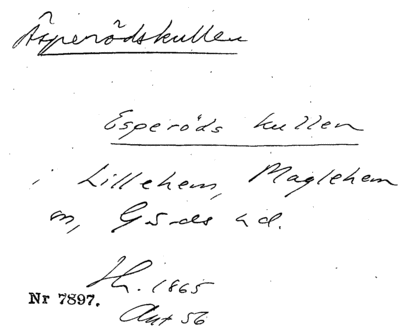 Äsperödskullen
Esperöds kullen
i Lillehem, Maglehem
sn, Gärds hd.
Hr. 1865
Nr 7897.
Ant 56